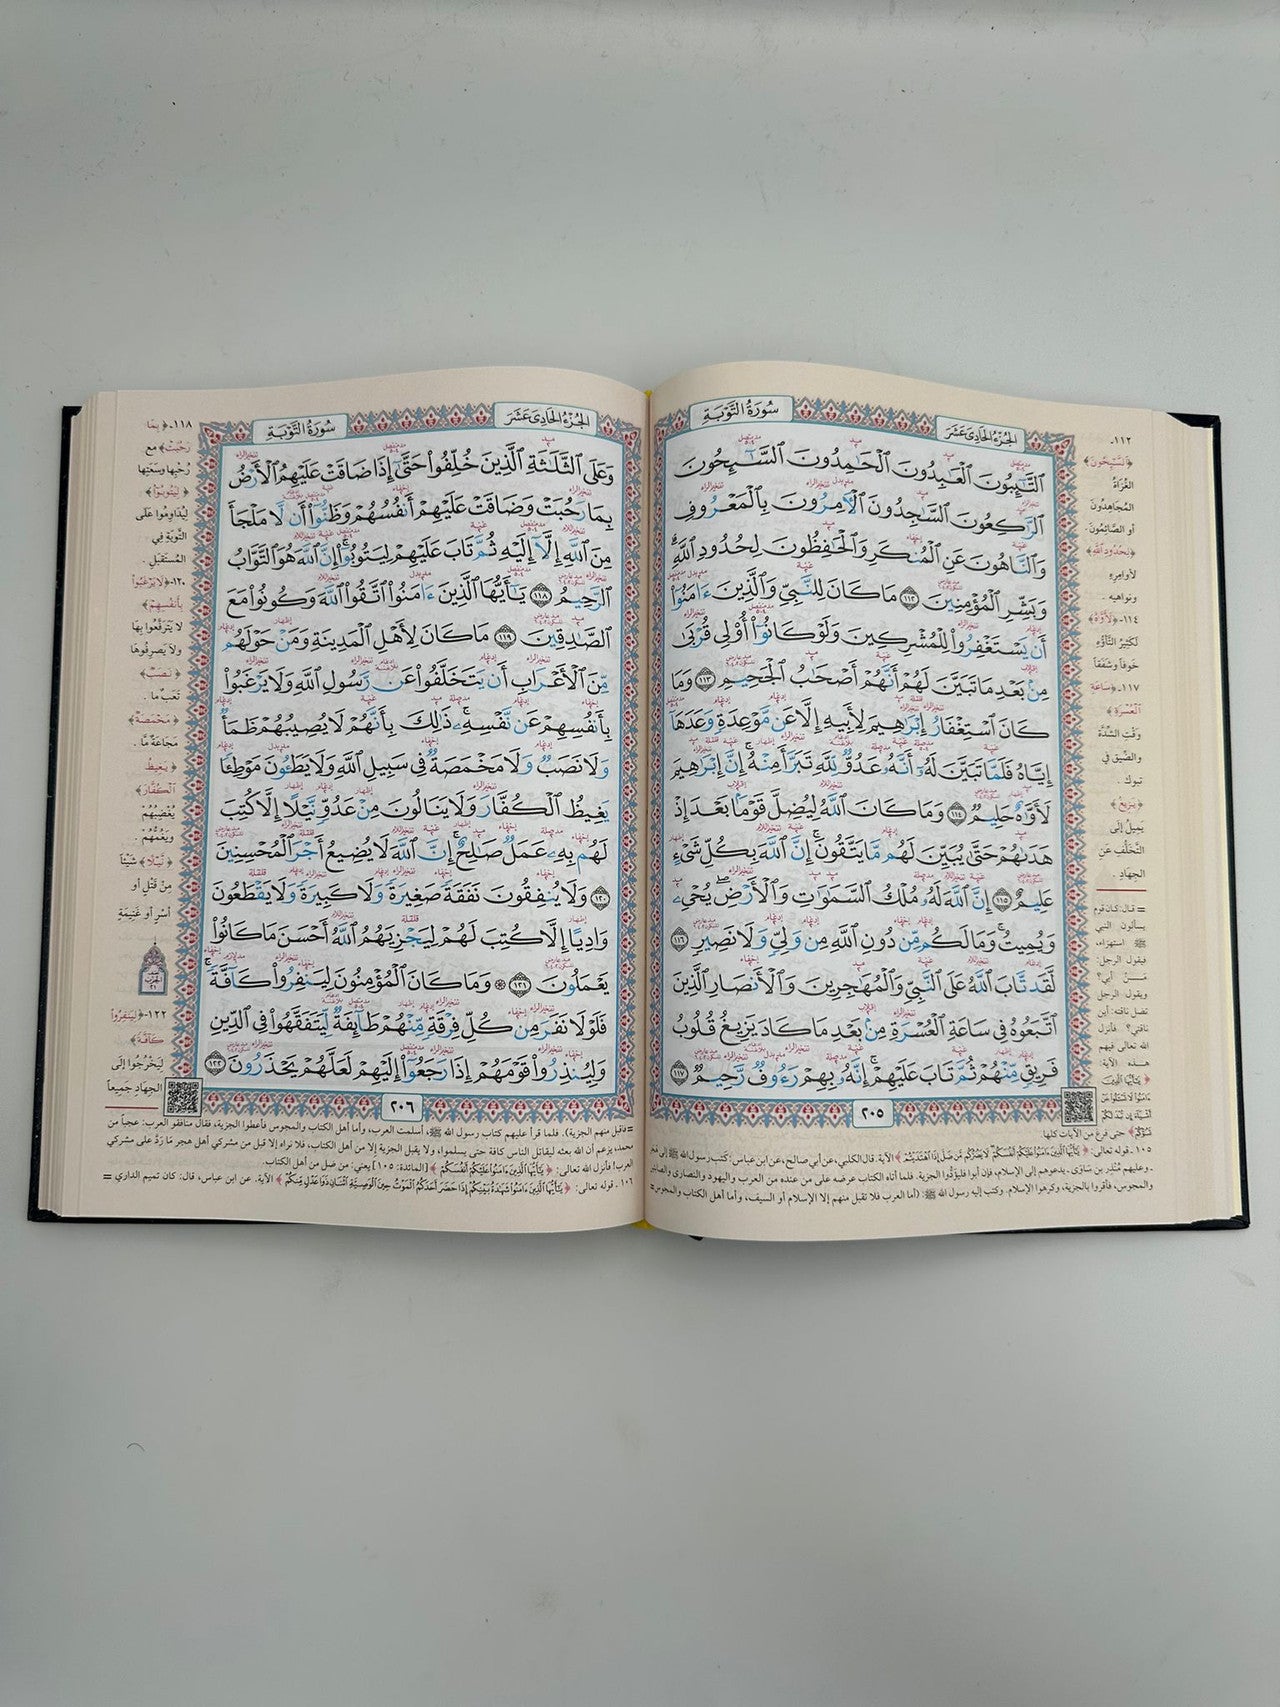 الجزء الحادي عشر
سورة التوبة
ٱلتَّـٰٓئِبُونَ ٱلْعَـٰبِدُونَ ٱلْحَـٰمِدُونَ ٱلسَّـٰٓئِحُونَ
ٱلرَّٰكِعُونَ ٱلسَّـٰجِدُونَ ٱلْـَٔامِرُونَ بِٱلْمَعْرُوفِ
وَٱلنَّاهُونَ عَنِ ٱلْمُنكَرِ وَٱلْحَـٰفِظُونَ لِحُدُودِ ٱللَّهِ ۗ
وَبَشِّرِ ٱلْمُؤْمِنِينَ ١١٢ مَا كَانَ لِلنَّبِىِّ وَٱلَّذِينَ ءَامَنُوٓا۟
أَن يَسْتَغْفِرُوا۟ لِلْمُشْرِكِينَ وَلَوْ كَانُوٓا۟ أُو۟لِى قُرْبَىٰ
مِنۢ بَعْدِ مَا تَبَيَّنَ لَهُمْ أَنَّهُمْ أَصْحَـٰبُ ٱلْجَحِيمِ ١١٣ وَمَا
كَانَ ٱسْتِغْفَارُ إِبْرَٰهِيمَ لِأَبِيهِ إِلَّا عَن مَّوْعِدَةٍ وَعَدَهَآ
إِيَّاهُ فَلَمَّا تَبَيَّنَ لَهُۥٓ أَنَّهُۥ عَدُوٌّ لِّلَّهِ تَبَرَّأَ مِنْهُ ۚ إِنَّ إِبْرَٰهِيمَ
لَأَوَّٰهٌ حَلِيمٌ ١١٤ وَمَا كَانَ ٱللَّهُ لِيُضِلَّ قَوْمًۢا بَعْدَ إِذْ
هَدَىٰهُمْ حَتَّىٰ يُبَيِّنَ لَهُم مَّا يَتَّقُونَ ۚ إِنَّ ٱللَّهَ بِكُلِّ شَىْءٍ
عَلِيمٌ ١١٥ إِنَّ ٱللَّهَ لَهُۥ مُلْكُ ٱلسَّمَـٰوَٰتِ وَٱلْأَرْضِ ۖ يُحْىِۦ
وَيُمِيتُ ۚ وَمَا لَكُم مِّن دُونِ ٱللَّهِ مِن وَلِىٍّ وَلَا نَصِيرٍ ١١٦
لَّقَد تَّابَ ٱللَّهُ عَلَى ٱلنَّبِىِّ وَٱلْمُهَـٰجِرِينَ وَٱلْأَنصَارِ ٱلَّذِينَ
ٱتَّبَعُوهُ فِى سَاعَةِ ٱلْعُسْرَةِ مِنۢ بَعْدِ مَا كَادَ يَزِيغُ قُلُوبُ
فَرِيقٍ مِّنْهُمْ ثُمَّ تَابَ عَلَيْهِمْ ۚ إِنَّهُۥ بِهِمْ رَءُوفٌ رَّحِيمٌ ١١٧
٢٠٥
١١٢-
﴿السَّٰٓئِحُونَ﴾
الغُزَاةُ
المُجاهِدُونَ
أو الصَّائِمُونَ .
﴿لِحُدُودِ اللَّهِ﴾
لأوامِرِهِ
ونواهيه .
١١٤-﴿لَأَوَّٰهٌ﴾
لَكثيرُ التَّأوُّهِ
خَوفاً وشَفَقاً
١١٧-﴿سَاعَةِ
الْعُسْرَةِ﴾
وقْتِ الشِّدَّةِ
والضِّيقِ في
تبوك .
﴿يَزِيغُ﴾
يَمِيلُ إلَى
التَّخَلُّفِ عَنِ
الجِهادِ .
= قال: كان قوم
يسألون النبي
ﷺ استهزاء،
فيقول الرجل:
مَنْ أبي؟
ويقول الرجل
تضل ناقته: أين
ناقتي؟ فأنزل
الله تعالى فيهم
هذه الآية:
﴿ يَٰٓأَيُّهَا الَّذِينَ
ءَامَنُوا لَا تَسْـَٔلُوا عَنْ
أَشْيَآءَ إِن تُبْدَ لَكُمْ
تَسُؤْكُمْ﴾ حتى فرغ من الآيات كلها.
١٠٥ـ قوله تعالى: ﴿ يَٰٓأَيُّهَا الَّذِينَ ءَامَنُوا عَلَيْكُمْ أَنفُسَكُمْ لَا يَضُرُّكُم مَّن ضَلَّ إِذَا اهْتَدَيْتُمْ﴾ الآية. قال الكلبي، عن أبي صالح، عن ابن عباس: كتب رسول الله ﷺ إلى هجر
وعليهم منذر بن ساوَى، يدعوهم إلى الإسلام، فإن أبوا فليؤدوا الجزية. فلما أتاه الكتاب عرضه على من عنده من العرب واليهود والنصارى والصابئين
والمجوس، فأقروا بالجزية، وكرهوا الإسلام. وكتب إليه رسول الله ﷺ: (أما العرب فلا تقبل منهم إلا الإسلام أو السيف، وأما أهل الكتاب والمجوس=
الجزء الحادي عشر
سورة التوبة
وَعَلَى ٱلثَّلَـٰثَةِ ٱلَّذِينَ خُلِّفُوا۟ حَتَّىٰٓ إِذَا ضَاقَتْ عَلَيْهِمُ ٱلْأَرْضُ
بِمَا رَحُبَتْ وَضَاقَتْ عَلَيْهِمْ أَنفُسُهُمْ وَظَنُّوٓا۟ أَن لَّا مَلْجَأَ
مِنَ ٱللَّهِ إِلَّآ إِلَيْهِ ثُمَّ تَابَ عَلَيْهِمْ لِيَتُوبُوٓا۟ ۚ إِنَّ ٱللَّهَ هُوَ ٱلتَّوَّابُ
ٱلرَّحِيمُ ١١٨ يَـٰٓأَيُّهَا ٱلَّذِينَ ءَامَنُوا۟ ٱتَّقُوا۟ ٱللَّهَ وَكُونُوا۟ مَعَ
ٱلصَّـٰدِقِينَ ١١٩ مَا كَانَ لِأَهْلِ ٱلْمَدِينَةِ وَمَنْ حَوْلَهُم
مِّنَ ٱلْأَعْرَابِ أَن يَتَخَلَّفُوا۟ عَن رَّسُولِ ٱللَّهِ وَلَا يَرْغَبُوا۟
بِأَنفُسِهِمْ عَن نَّفْسِهِۦ ۚ ذَٰلِكَ بِأَنَّهُمْ لَا يُصِيبُهُمْ ظَمَأٌ
وَلَا نَصَبٌ وَلَا مَخْمَصَةٌ فِى سَبِيلِ ٱللَّهِ وَلَا يَطَـُٔونَ مَوْطِئًا
يَغِيظُ ٱلْكُفَّارَ وَلَا يَنَالُونَ مِنْ عَدُوٍّ نَّيْلًا إِلَّا كُتِبَ
لَهُم بِهِۦ عَمَلٌ صَـٰلِحٌ ۚ إِنَّ ٱللَّهَ لَا يُضِيعُ أَجْرَ ٱلْمُحْسِنِينَ
١٢٠ وَلَا يُنفِقُونَ نَفَقَةً صَغِيرَةً وَلَا كَبِيرَةً وَلَا يَقْطَعُونَ
وَادِيًا إِلَّا كُتِبَ لَهُمْ لِيَجْزِيَهُمُ ٱللَّهُ أَحْسَنَ مَا كَانُوا۟
يَعْمَلُونَ ١٢١ ۞ وَمَا كَانَ ٱلْمُؤْمِنُونَ لِيَنفِرُوا۟ كَآفَّةً ۚ
فَلَوْلَا نَفَرَ مِن كُلِّ فِرْقَةٍ مِّنْهُمْ طَآئِفَةٌ لِّيَتَفَقَّهُوا۟ فِى ٱلدِّينِ
وَلِيُنذِرُوا۟ قَوْمَهُمْ إِذَا رَجَعُوٓا۟ إِلَيْهِمْ لَعَلَّهُمْ يَحْذَرُونَ ١٢٢
٢٠٦
١١٨-﴿ بِمَا
رَحُبَتْ﴾ مع
رُحْبِها وسَعَتِها
﴿ لِيَتُوبُوٓا﴾
لِيُداوِمُوا عَلَى
التَّوبَةِ فِي
المُسْتَقبلِ .
١٢٠-﴿لَا يَرْغَبُوا
بِأَنفُسِهِمْ﴾
لا يَتَرَفَّعُوا بِهَا
ولا يَصرِفُوهَا
﴿ نَصَبٌ﴾
تَعَبٌ مَا .
﴿ مَخْمَصَةٌ﴾
مَجاعَةٌ مَّا .
﴿ يَغِيظُ
الْكُفَّارَ﴾
يُغضِبُهُمْ
ويَغُمُّهُمْ .
﴿ نَّيْلًا﴾ شَيْئاً
مِنْ قَتْلٍ أو
أسْرٍ أو غَنِيمَةٍ
الحزب
٢١
١٢٢-﴿لِيَنفِرُوا
كَآفَّةً﴾
لِيَخْرُجُوا إلَى
الجِهادِ جَمِيعاً
=فاقبل منهم الجزية). فلما قرأ عليهم كتاب رسول الله ﷺ، أسلمت العرب، وأما أهل الكتاب والمجوس فأعطوا الجزية، فقال منافقو العرب: عجباً من
محمد، يزعم أن الله بعثه ليقاتل الناس كافة حتى يسلموا، ولا يقبل الجزية إلا من أهل الكتاب، فلا نراه إلا قبل من مشركي أهل هجر مَا رَدَّ على مشركي
العرب! فأنزل الله تعالى: ﴿ يَٰٓأَيُّهَا الَّذِينَ ءَامَنُوا عَلَيْكُمْ أَنفُسَكُمْ ﴾ [المائدة: ١٠٥] يعني: من ضل من أهل الكتاب.
١٠٦ـ قوله تعالى: ﴿ يَٰٓأَيُّهَا الَّذِينَ ءَامَنُوا شَهَٰدَةُ بَيْنِكُمْ إِذَا حَضَرَ أَحَدَكُمُ الْمَوْتُ حِينَ الْوَصِيَّةِ اثْنَانِ ذَوَا عَدْلٍ مِّنكُمْ ﴾ الآية. عن ابن عباس، قال: كان تميم الداري =